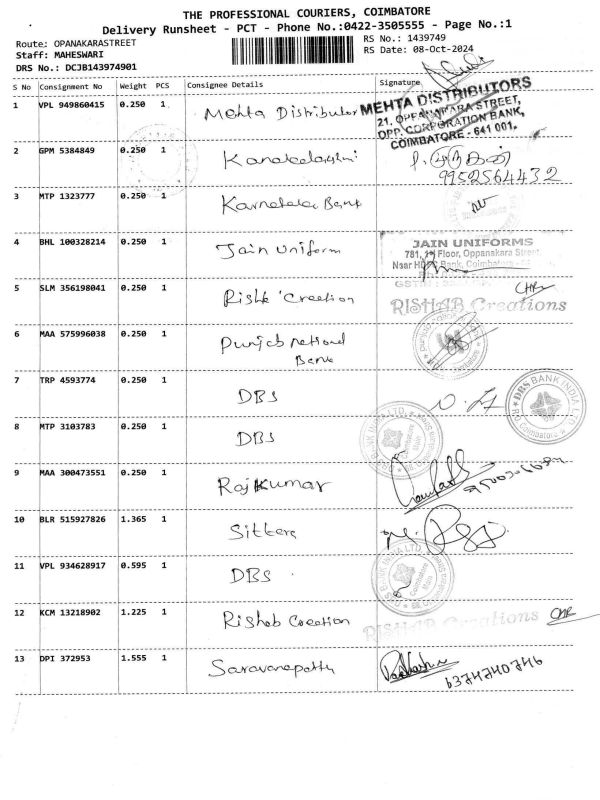 THE PROFESSIONAL COURIERS, COIMBATORE
Delivery Runsheet - PCT - Phone No.:0422-3505555 - Page No.:1
Route: OPANAKARASTREET
RS No.: 1439749
Staff: MAHESWARI
RS Date: 08-Oct-2024
DRS No.: DCJB143974901
S No Consignment No Weight PCS Consignee Details Signature
1 VPL 949860415 0.250 1 Mehta Distributor
MEHTA DISTRIBUTORS
21, OPPANAKARA STREET,
OPP. CORPORATION BANK,
COIMBATORE - 641 001.
2 GPM 5384849 0.250 1
9952564432
3 MTP 1323777 0.250 1 Karnataka Bank
4 BHL 100328214 0.250 1 Jain Uniform
JAIN UNIFORMS
781, 1st Floor, Oppanakara Street
Near HDFC Bank, Coimbatore
5 SLM 356198041 0.250 1 Creation
RISHAB Creations
6 MAA 575996038 0.250 1 Punjab national
Bank
7 TRP 4593774 0.250 1 DBS
DBS BANK INDIA LTD.
Coimbatore
8 MTP 3103783 0.250 1 DBS
BANK INDIA LTD.
9 MAA 300473551 0.250 1 Rajkumar
10 BLR 515927826 1.365 1 Sitters
11 VPL 934628917 0.595 1 DBS
BANK INDIA LTD.
12 KCM 13218902 1.225 1 Rishab Creation
RISHAB Creations
13 DPI 372953 1.555 1 Saravanapatty
6374740746